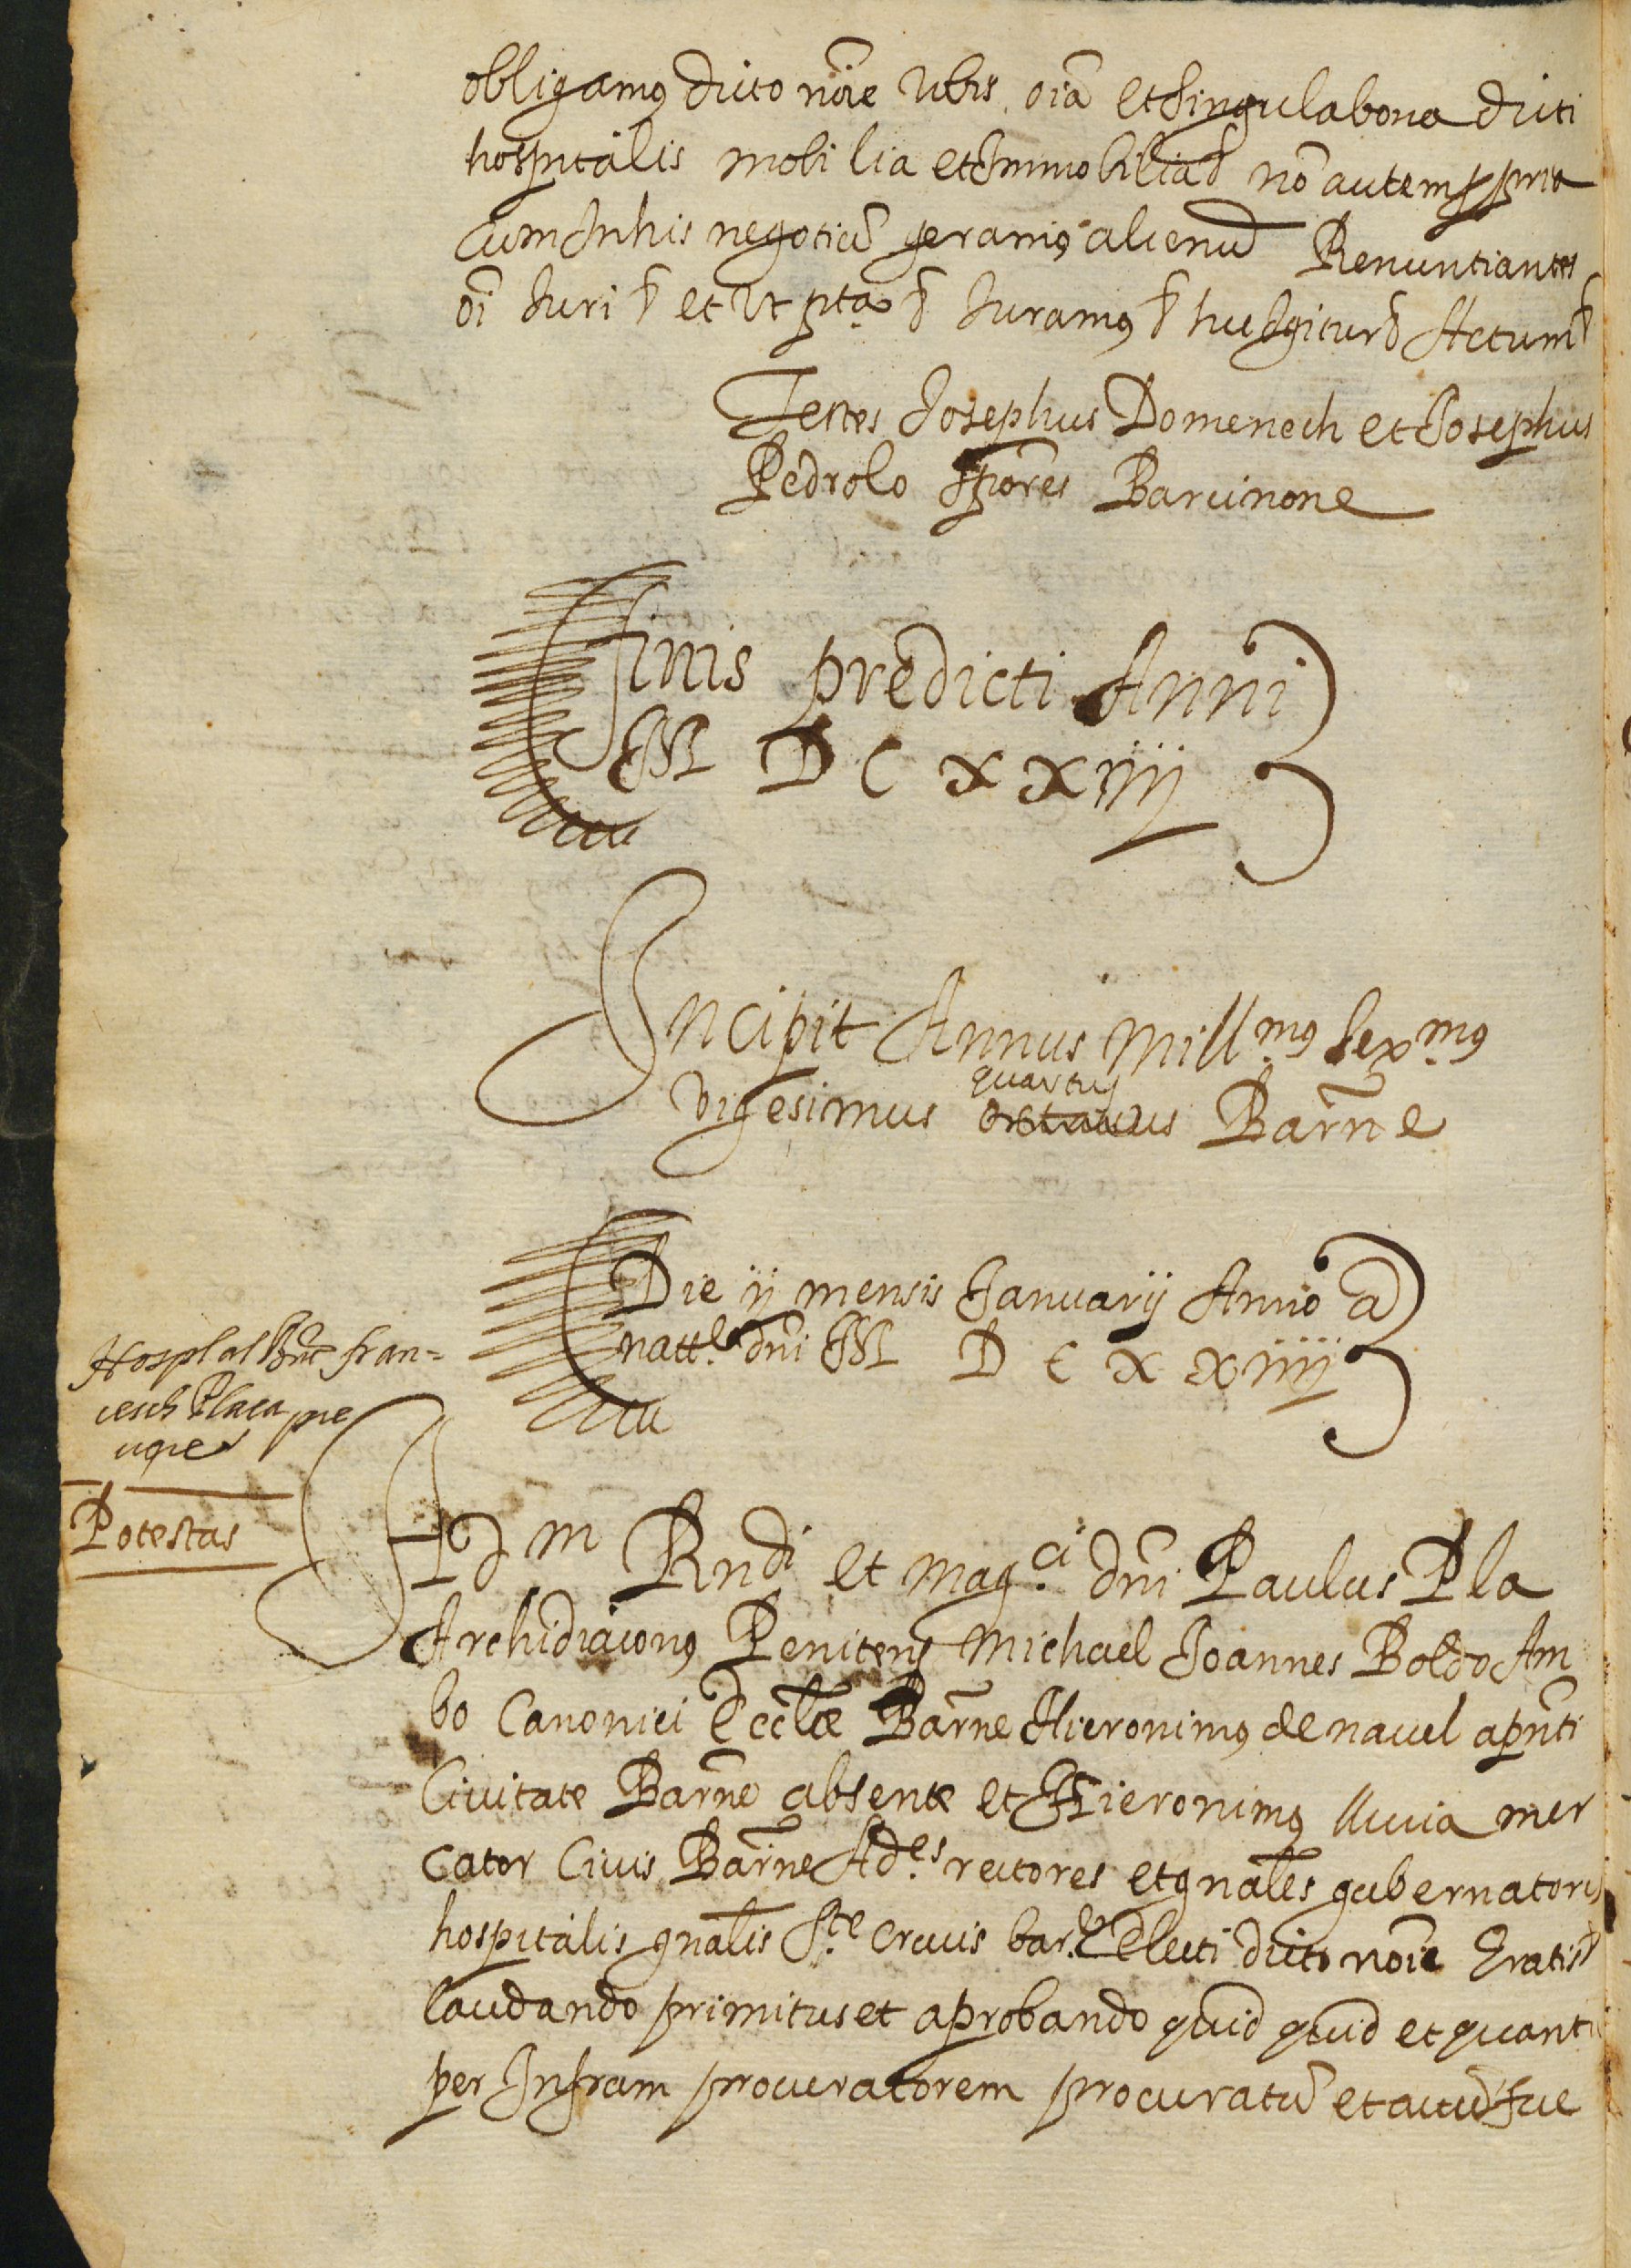 obligamus dicto nōie vobis oiā et singula bona dicti
hospitalis mobilia et immobilia nō autem ppria
cum In his negotiū geramus alienū Renuntiantes
oī Iuri et vt pta Iuramus huc Igitur Actum
Testes Josephus Domenech et Josephus
Pedrolo Barcinone
Finis predicti Anni
M D C XXiiij
Incipit Annus Mill.mus sex.mus
quartus
vigesimus octavus Barne
Die ij mensis Januarij Anno a
natt.e dni M D C X Xiiij
Hospl al fran=
cesch Plaça pre
uere
Potestas
Adm Rndi et mag.ci dni Paulus Pla
Archidiaconus Michael Joannes Boldo Am
bo Canonici Eccliæ Barne Hieronimus de navel apnti
Civitate Barne absente et Hieronimus lluvia mer
cator Civis Barne Ad.es rectores et gnales gubernatores
hospitalis gnalis S.te crucis bar.e Electi dicto nōie Gratis
laudando primitus et aprobando quid quid et quantū
per Infram procuratorem procuratū et actū fue